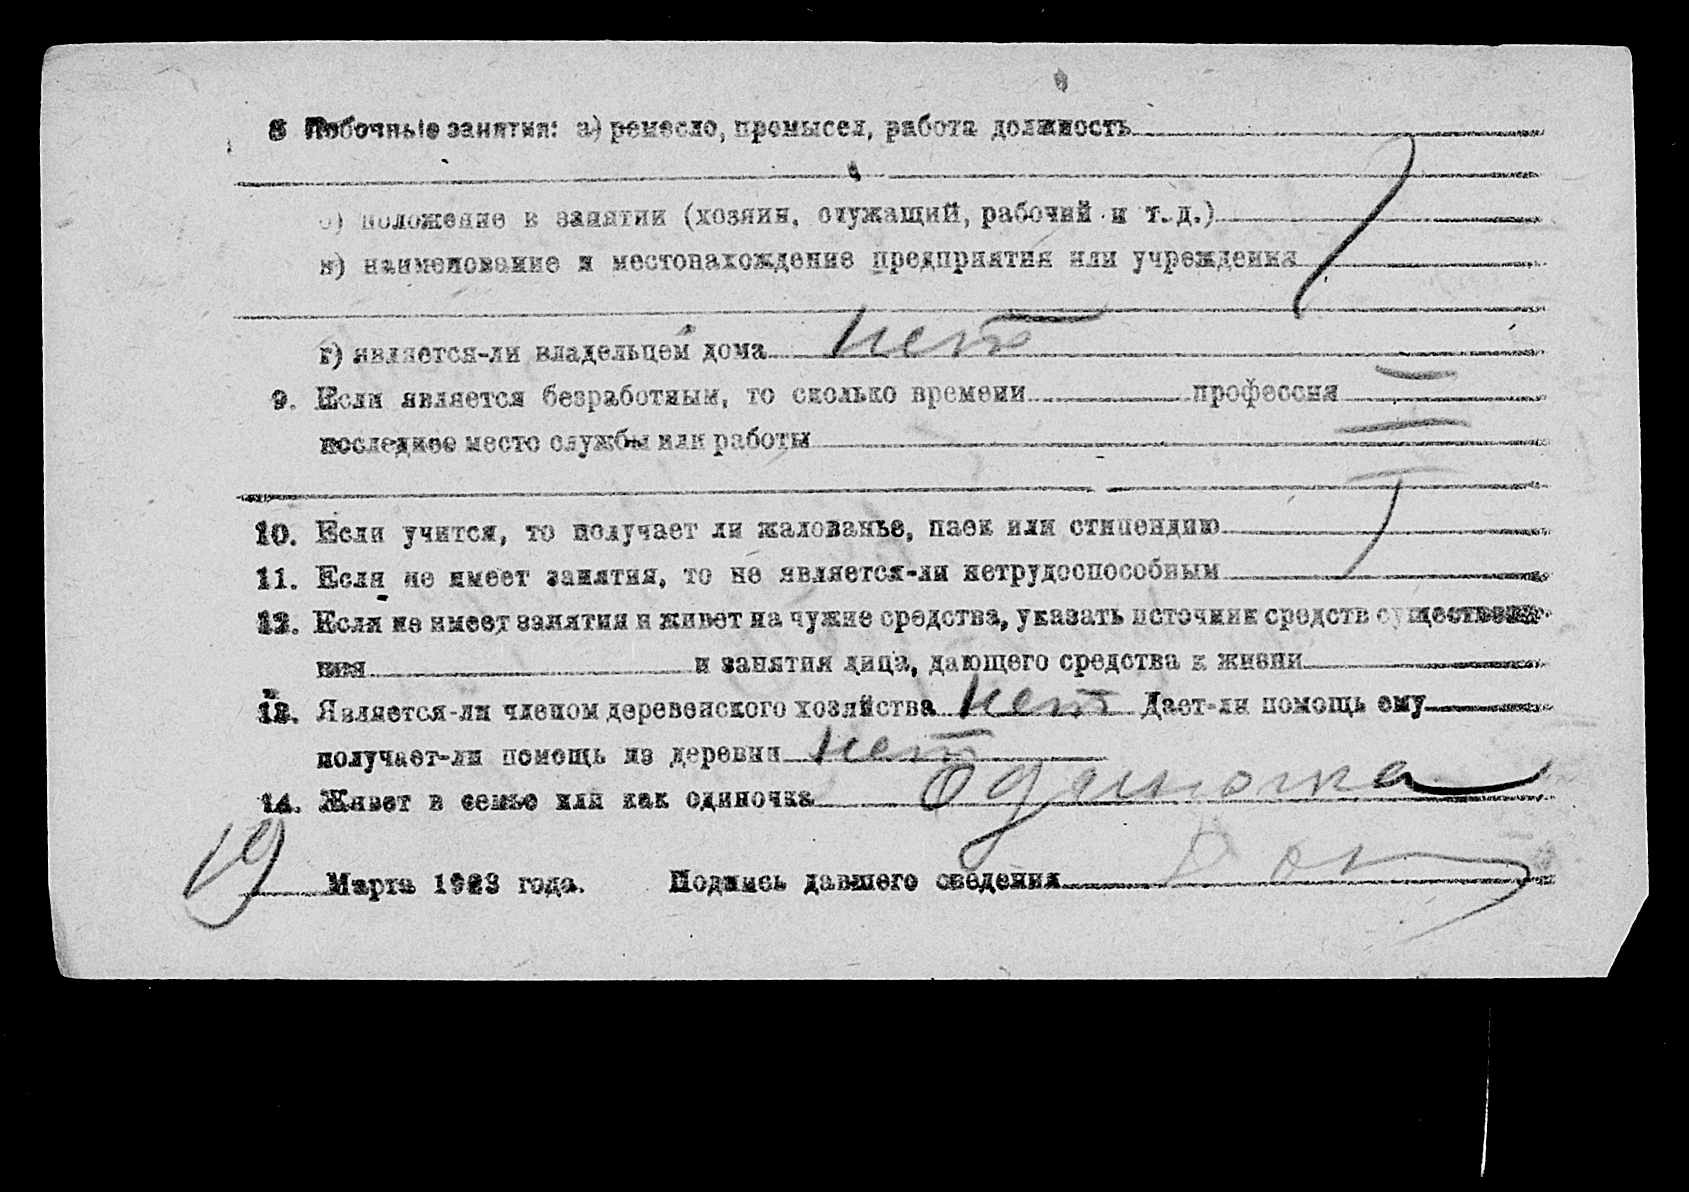 8 Побочные занятия: а) ремесло, промысел, работа должность
б) положение в занятии (хозяин, служащий, рабочий и т. д.)
в) наименование и местонахождение предприятия или учреждения
г) является-ли владельцем дома нет
9. Если является безработным, то сколько времени профессия
последнее место службы или работы
10. Если учится, то получает ли жалованье, паек или стипендию
11. Если не имеет занятия, то не является-ли нетрудоспособным
12. Если не имеет занятия и живет на чужие средства, указать источник средств существова-
ния и занятия лица, дающего средства к жизни
13. Является-ли членом деревенского хозяйства нет Дает-ли помощь ему
получает-ли помощь из деревни нет
14. Живет в семье или как одиночка одиночка
19 Марта 1923 года. Подпись давшего сведения